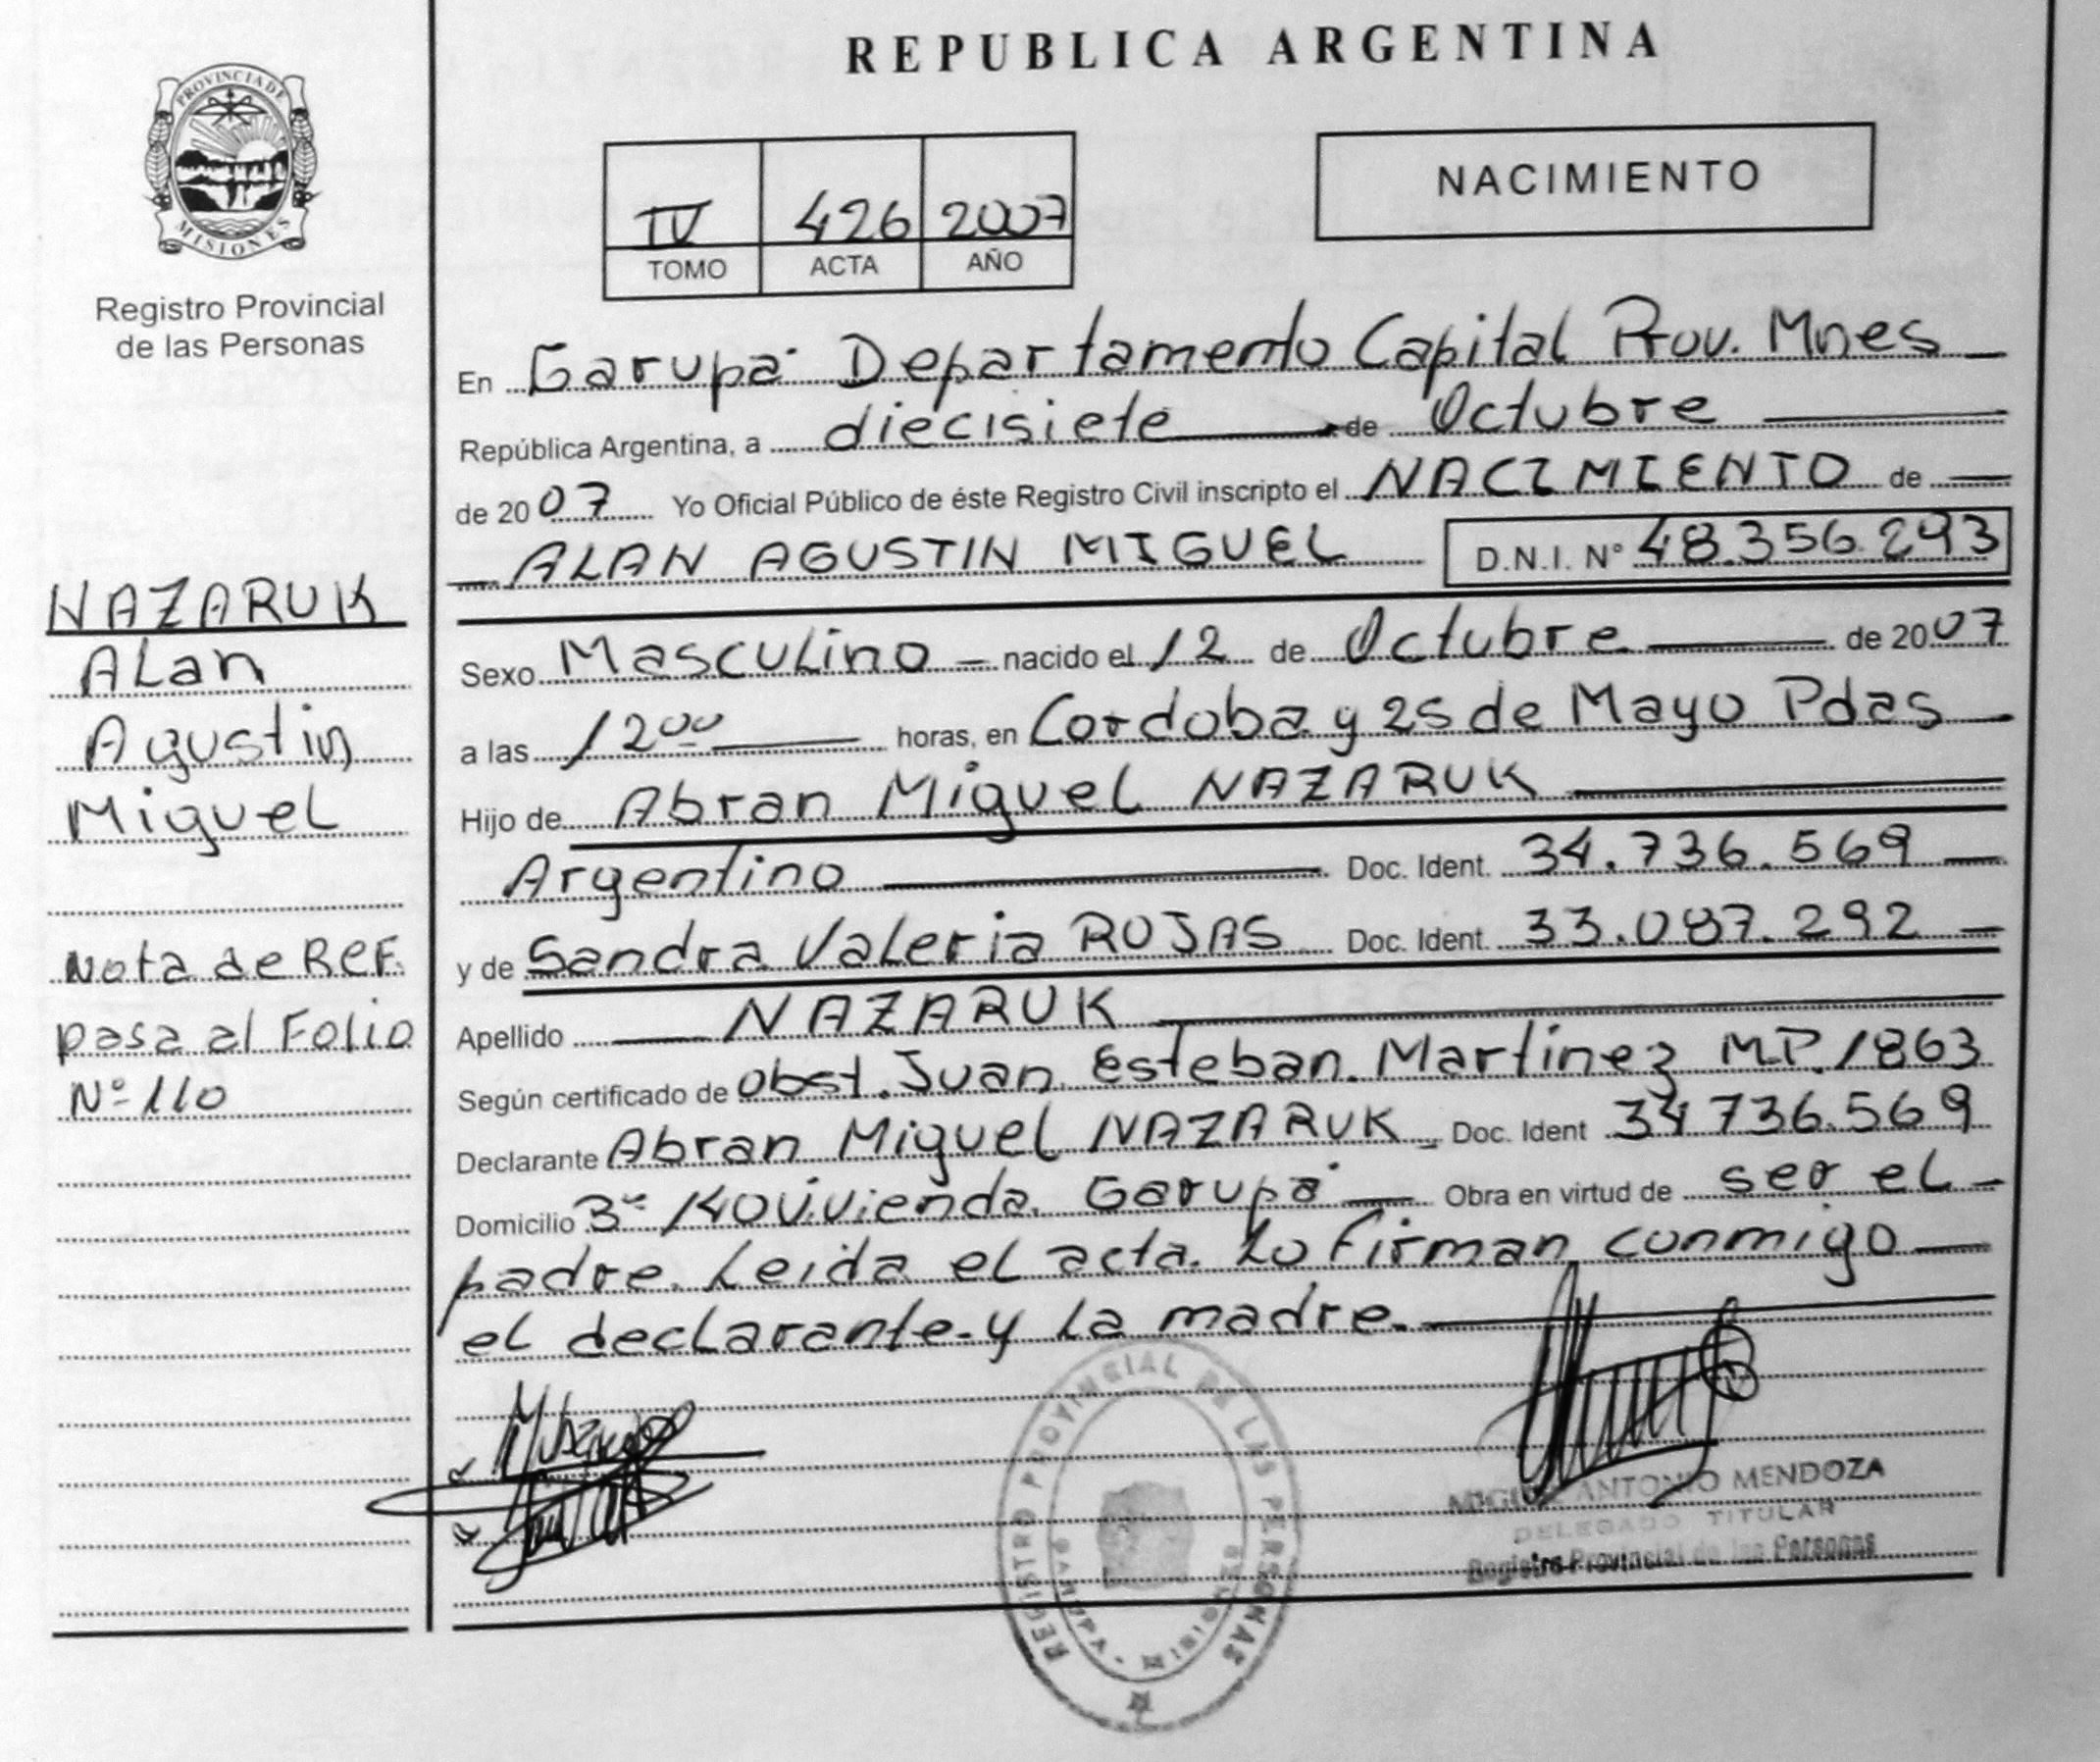 REPUBLICA ARGENTINA
PROVINCIA DE
MISIONES
Registro Provincial
de las Personas
NACIMIENTO
IV 426 2007
TOMO ACTA AÑO
En Garupá Departamento Capital Prov. Mnes
República Argentina, a diecisiete de Octubre
de 2007 Yo Oficial Público de éste Registro Civil inscripto el NACIMIENTO de
ALAN AGUSTIN MIGUEL D.N.I. N° 48.356.293
Sexo Masculino nacido el 12 de Octubre de 2007
a las 12⁰⁰ horas, en Cordoba y 25 de Mayo Pdas
Hijo de Abran Miguel NAZARUK
Argentino Doc. Ident. 34.736.569
y de Sandra Valeria ROJAS Doc. Ident. 33.087.292
Apellido NAZARUK
Según certificado de Obst. Juan Esteban Martinez MP. 1863
Declarante Abran Miguel NAZARUK Doc. Ident 34736.569
Domicilio 3ª 140 Vivienda. Garupá Obra en virtud de ser el
padre. Leida el acta. Lo Firman conmigo
el declarante y la madre.
NAZARUK
Alan
Agustin
Miguel
Nota de REF.
pasa al Folio
N° 110
REGISTRO PROVINCIAL DE LAS PERSONAS
GARUPA
MIGUEL ANTONIO MENDOZA
DELEGADO TITULAR
Registro Provincial de las Personas